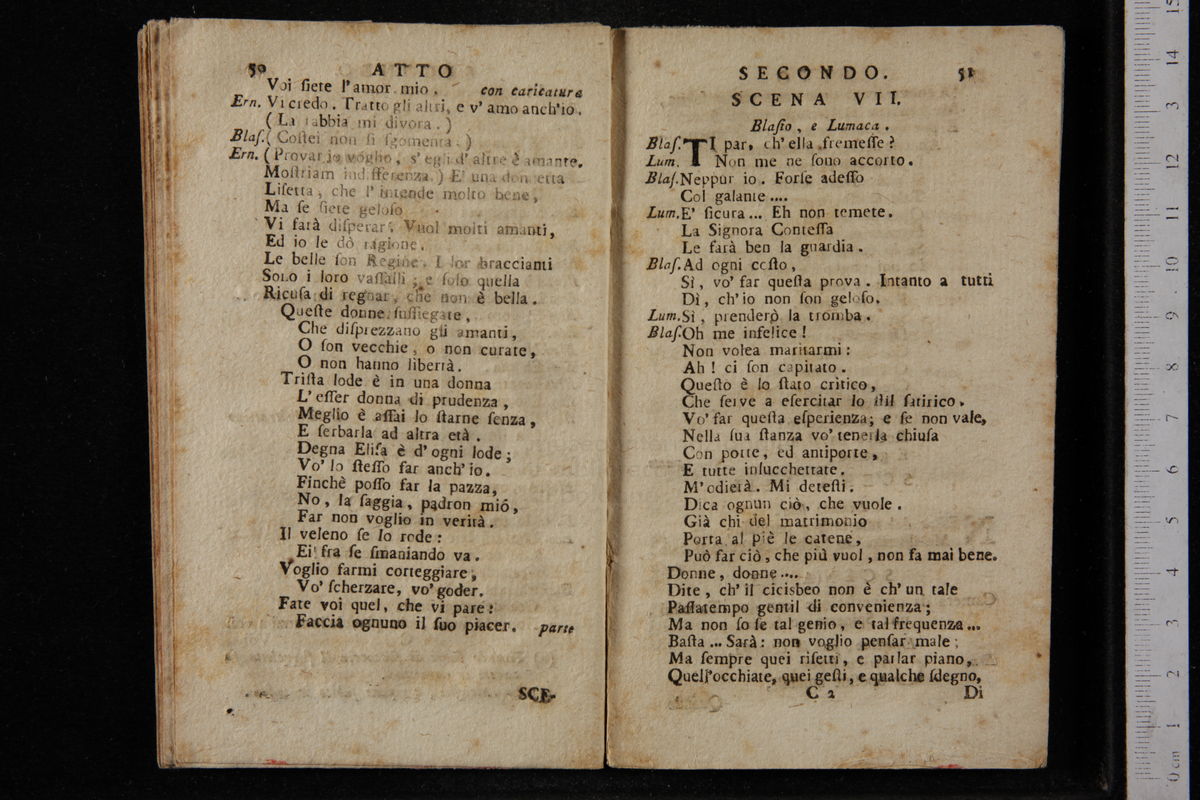 50 ATTO
Voi ſiete l'amor mio. con caricatura
Ern. Vi credo. Tratto gli altri, e v' amo anch'io.
(La rabbia mi divora.)
Blaſ.(Coſtei non ſi ſgomenta.)
Ern. (Provar io voglio, s' egli d' altre è amante.
Moſtriam indifferenza.) E' una donnetta
Liſetta, che l' intende molto bene,
Ma ſe ſiete geloſo
Vi farà diſperar. Vuol molti amanti,
Ed io le dò ragione.
Le belle ſon Regine. I lor braccianti
Solo i loro vaſſalli; e ſolo quella
Ricuſa di regnar, che non è bella.
Queſte donne ſuſſiegate,
Che diſprezzano gli amanti,
O ſon vecchie, o non curate,
O non hanno libertà.
Triſta lode è in una donna
L' eſſer donna di prudenza,
Meglio è aſſai lo ſtarne ſenza,
E ſerbarla ad altra età.
Degna Eliſa è d' ogni lode;
Vo' lo ſteſſo far anch' io.
Finchè poſſo far la pazza,
No, la ſaggia, padron mió,
Far non voglio in verità.
Il veleno ſe lo rode:
Ei fra ſe ſmaniando va.
Voglio farmi corteggiare,
Vo' ſcherzare, vo' goder.
Fate voi quel, che vi pare:
Faccia ognuno il ſuo piacer. parte
SCE-
SECONDO. 51
SCENA VII.
Blaſio, e Lumaca.
Blaſ. TI par, ch' ella fremeſſe?
Lum. Non me ne ſono accorto.
Blaſ.Neppur io. Forſe adeſſo
Col galante....
Lum.E' ſicura... Eh non temete.
La Signora Conteſſa
Le farà ben la guardia.
Blaſ.Ad ogni ceſto,
Sì, vo' far queſta prova. Intanto a tutti
Dì, ch' io non ſon geloſo.
Lum.Sì, prenderò la tromba.
Blaſ.Oh me infelice!
Non volea maritarmi:
Ah! ci ſon capitato.
Queſto è lo ſtato critico,
Che ſerve a eſercitar lo ſtil ſatirico.
Vo' far queſta eſperienza; e ſe non vale,
Nella ſua ſtanza vo' tenerla chiuſa
Con porte, ed antiporte,
E tutte inlucchettate.
M' odierà. Mi deteſti.
Dica ognun ciò, che vuole.
Già chi del matrimonio
Porta al piè le catene,
Può far ciò, che più vuol, non fa mai bene.
Donne, donne....
Dite, ch' il cicisbeo non è ch' un tale
Paſſatempo gentil di convenienza;
Ma non ſo ſe tal genio, e tal frequenza...
Baſta... Sarà: non voglio penſar male:
Ma ſempre quei riſetti, e parlar piano,
Quell'occhiate, quei geſti, e qualche ſdegno,
C 2 Di